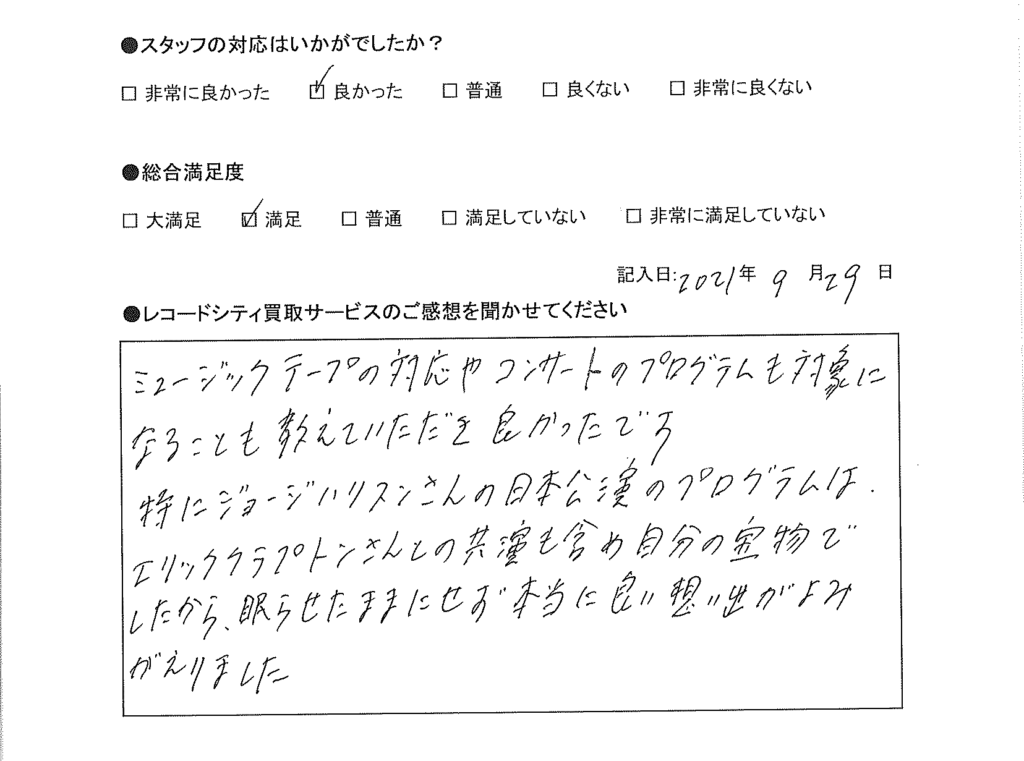 ●スタッフの対応はいかがでしたか？
□ 非常に良かった ☑ 良かった □ 普通 □ 良くない □ 非常に良くない
●総合満足度
□ 大満足 ☑ 満足 □ 普通 □ 満足していない □ 非常に満足していない
記入日:2021年 9 月29 日
●レコードシティ買取サービスのご感想を聞かせてください
ミュージックテープの対応やコンサートのプログラムも対象に
なることも教えていただき良かったです
特にジョージハリスンさんの日本公演のプログラムは、
エリッククラプトンさんとの共演も含め自分の宝物で
したから、眠らせたままにせず本当に良い想い出がよみ
がえりました